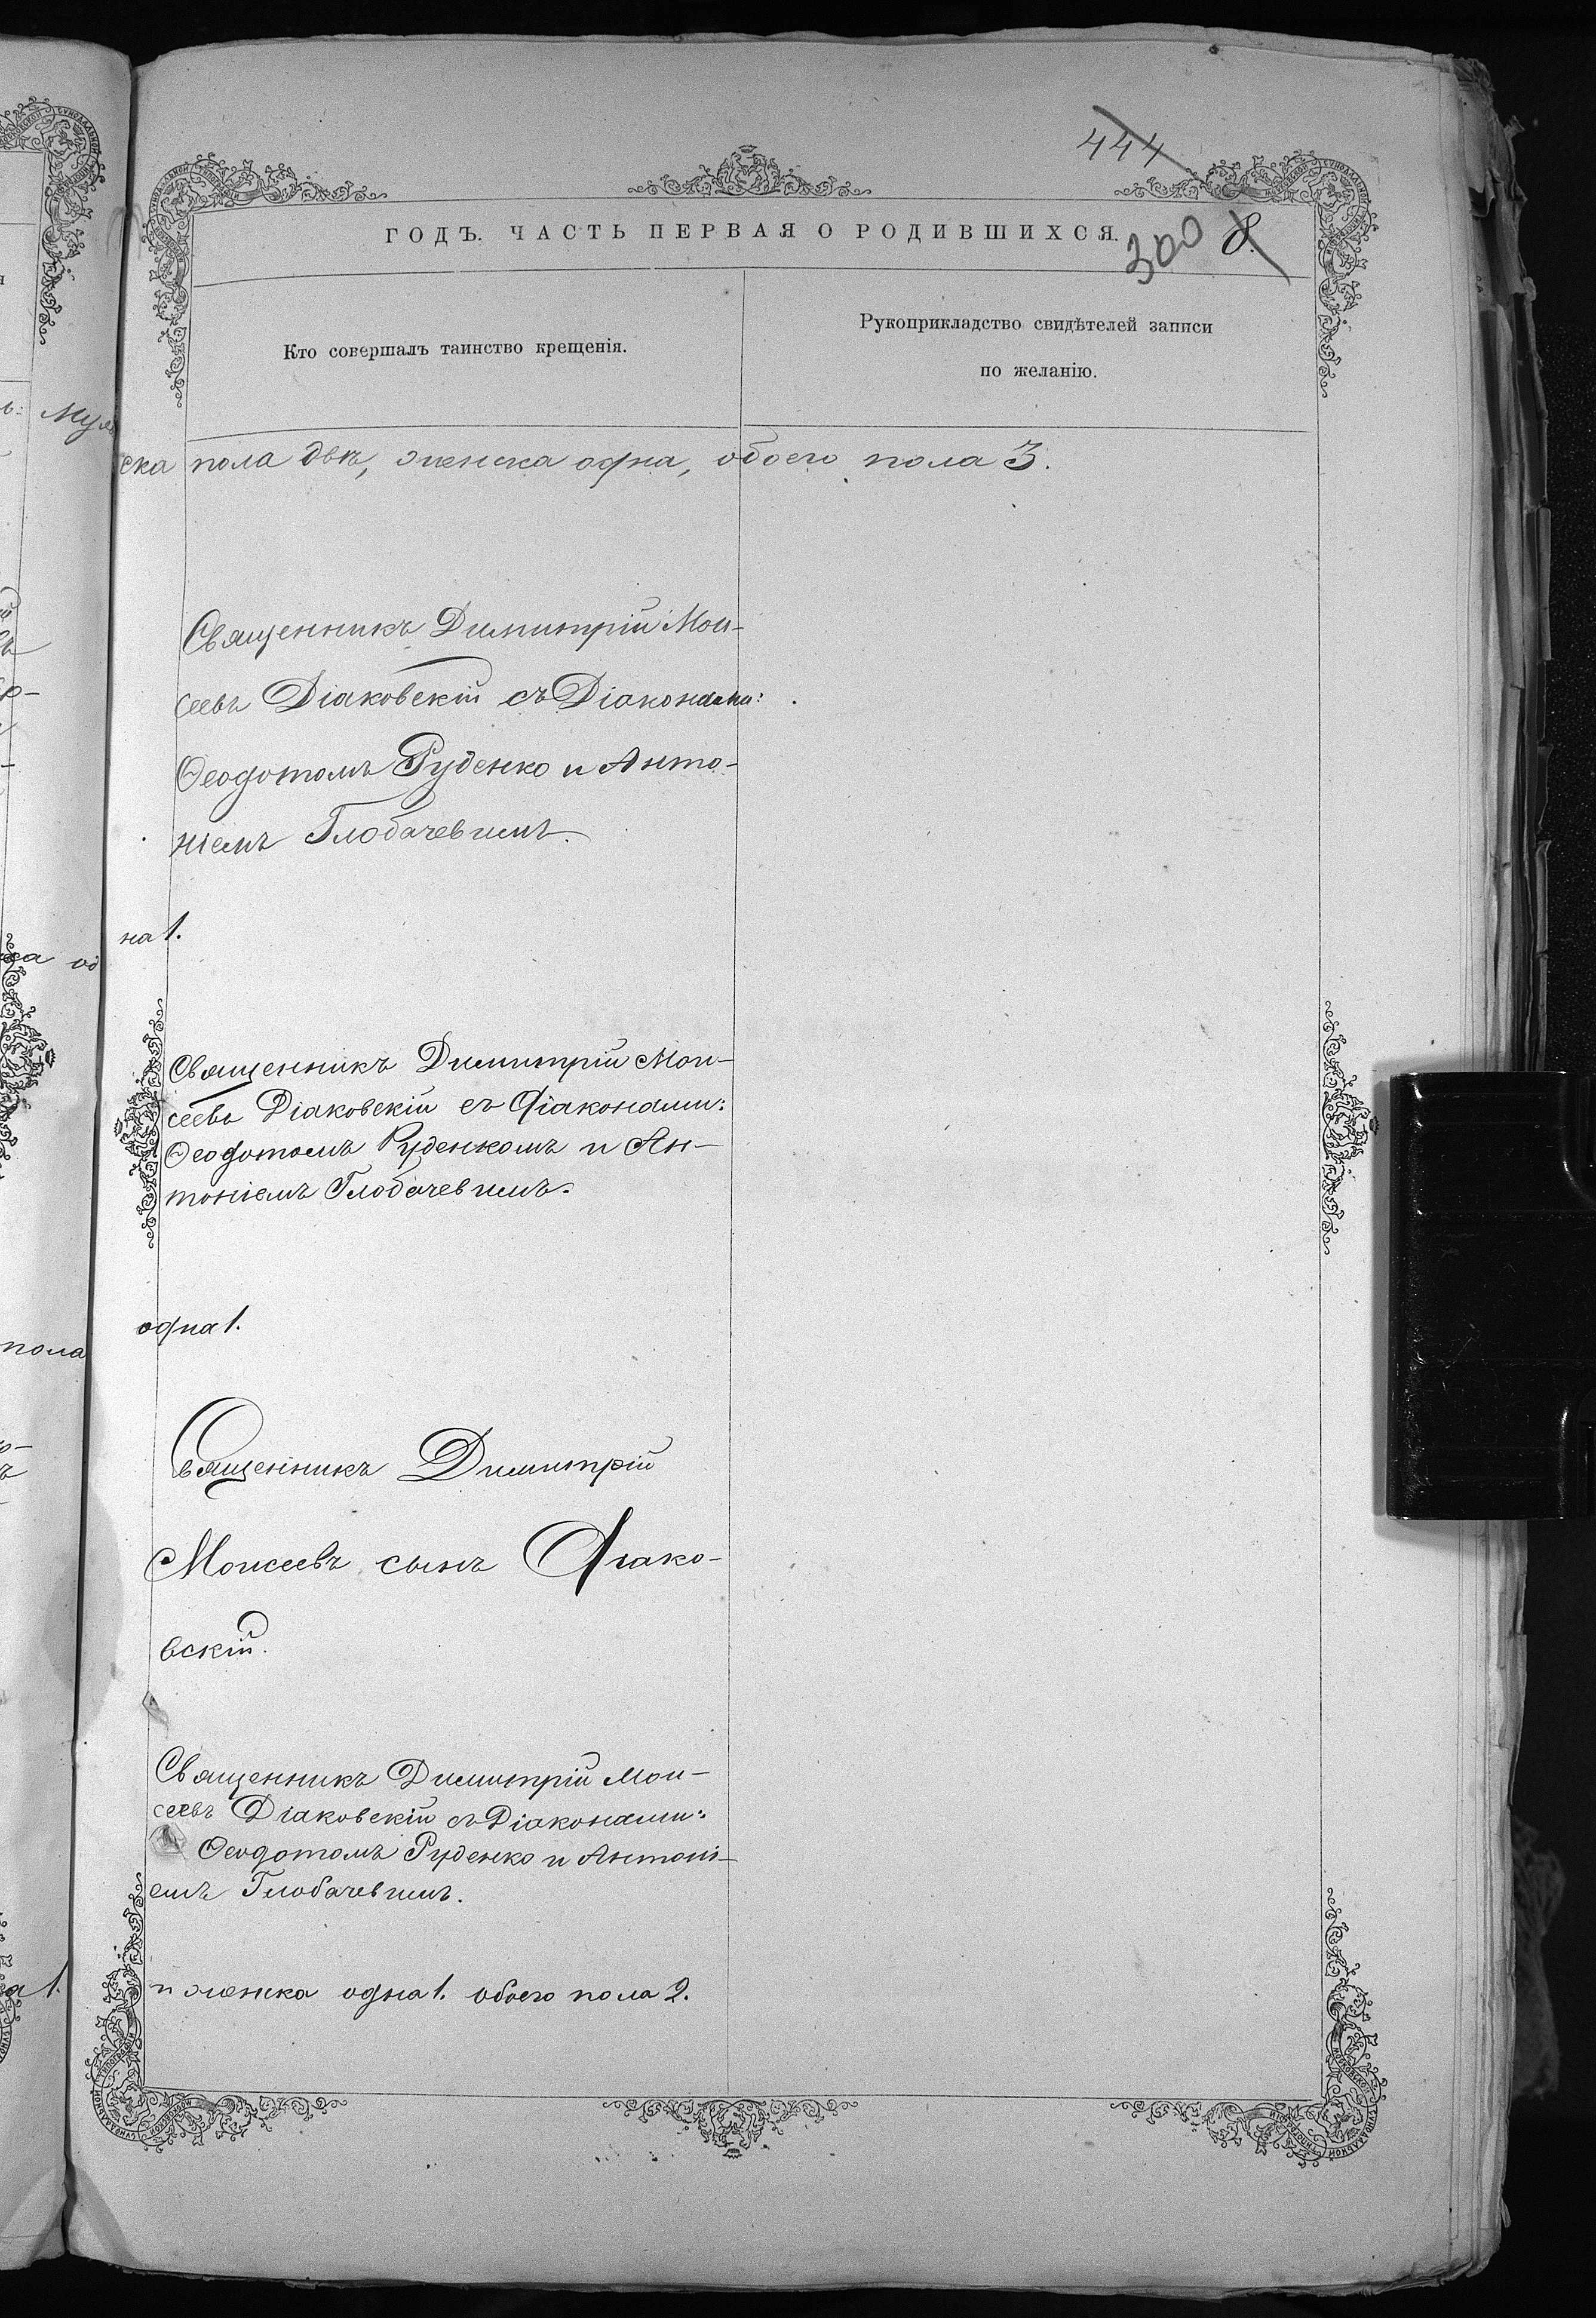 444
ГОДЪ. ЧАСТЬ ПЕРВАЯ О РОДИВШИХСЯ.
300 8.
Кто совершалъ таинство крещенія.
Рукоприкладство свидѣтелей записи
по желанію.
Муж
ска пола двѣ, женска одна, обоего пола 3.
Священникъ Димитрій Мои-
сеевъ Діаковскій съ Діаконами:
Ѳеодотомъ Руденко и Анто-
ніемъ Глобачевимъ.
на 1.
Священникъ Димитрій Мои-
сеевъ Діаковскій съ Діаконами:
Ѳеодотомъ Руденкомъ и Ан-
тоніемъ Глобачевимъ.
пола
одна 1.
Священникъ Димитрій
Моисеевъ сынъ Діако-
вскій.
Священникъ Димитрій Мои-
сеевъ Діаковскій съ Діаконами:
Ѳеодотомъ Руденко и Антоні-
емъ Глобачевимъ.
и женска одна 1. обоего пола 2.